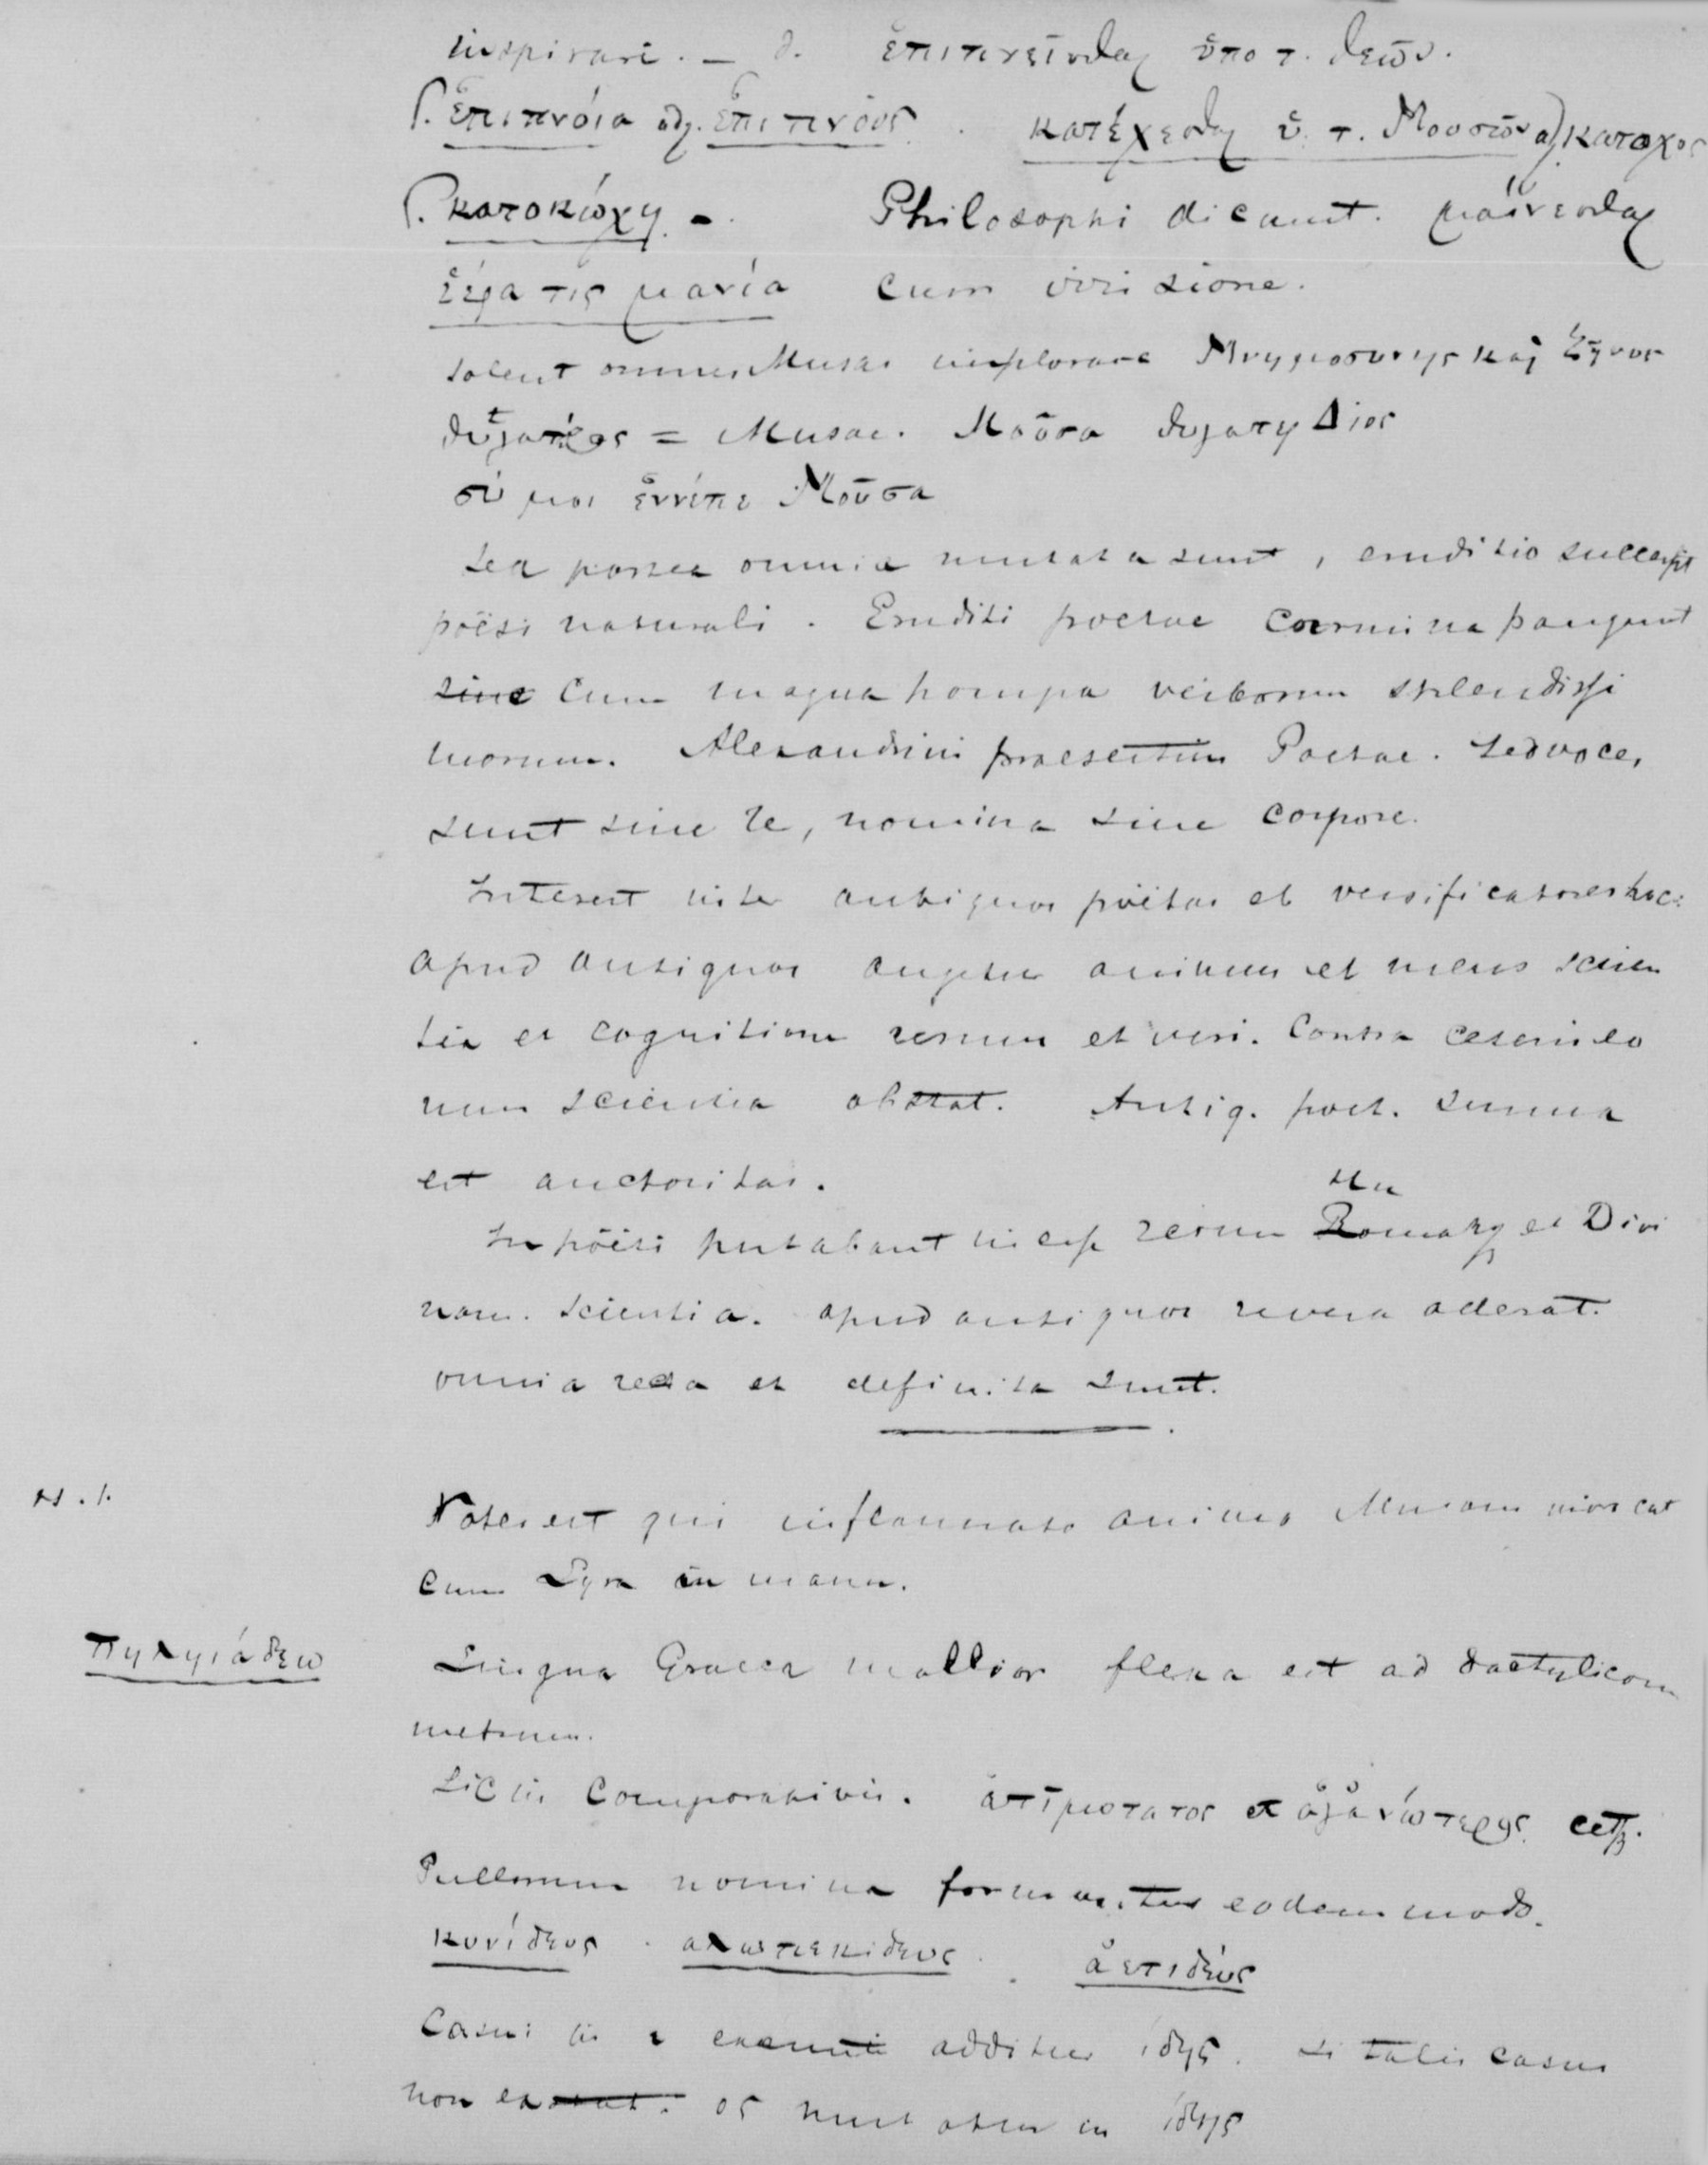 inspirari. — d. ἐπιπνεῖσθαι ὑπο τ. θεῶν.
S. ἐπιπνόια adj. ἐπιπνους. κατέχεσθαι ὑ. τ. Μουσῶν adj κατοχος
S. κατοκώχη - Philosophi dicunt. μαίνεσθαι
θεία τις μανία cum irrisione.
solent omnes Musas implorare Μνημοσυνης και Ζηνος
θυγατέρες = Musae. Μοῦσα θυγατηρ Διος
σύ μοι ἔννεπε Μοῦσα
sed postea omnia mutata sunt, eruditio successit
poësi naturali. Eruditi poetae carmina pangunt
sine cum magna pompa verborum splendissi
morum. Alexandrini praesertim Poetae. sed voces
sunt sine re, nomina sine corpore.
Interest inter antiquos poëtas et versificatores hoc:
apud antiquos augetur animus et mens scien
tia et cognitione rerum et veri. Contra ceteris eo
rum scientia abstat. Antiq. poet. summa
est auctoritas.
In poësi putabant inesse rerum Romanar Hu et Divi
nar. scientia. apud antiquos revera aderat.
omnia recta et definita sunt.
N. 1. Vates est qui inflammato animo Musam invocat
cum Lyra in manu.
Πηληιάδεω Lingua Graeca mollior flexa est ad dactylicum
metrum.
Sic in Comparativis. ἀτῑμοτατος et ἀγανώτερος cett.
Pullorum nomina formantur eodem modo.
κυνίδευς. αλωπεκιδευς. ἀετιδεύς
Casui in ι exeunti additur ίδης. si talis casus
non exstat. ος mutatur in ίδης